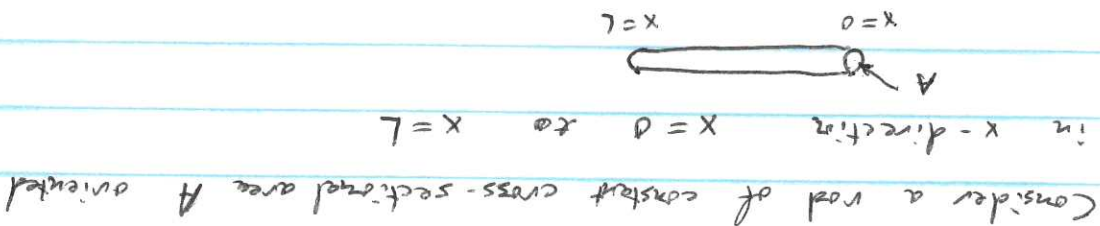 Consider a rod of constant cross-sectional area A oriented
in x-direction x=0 to x=L
A
x=0 x=L